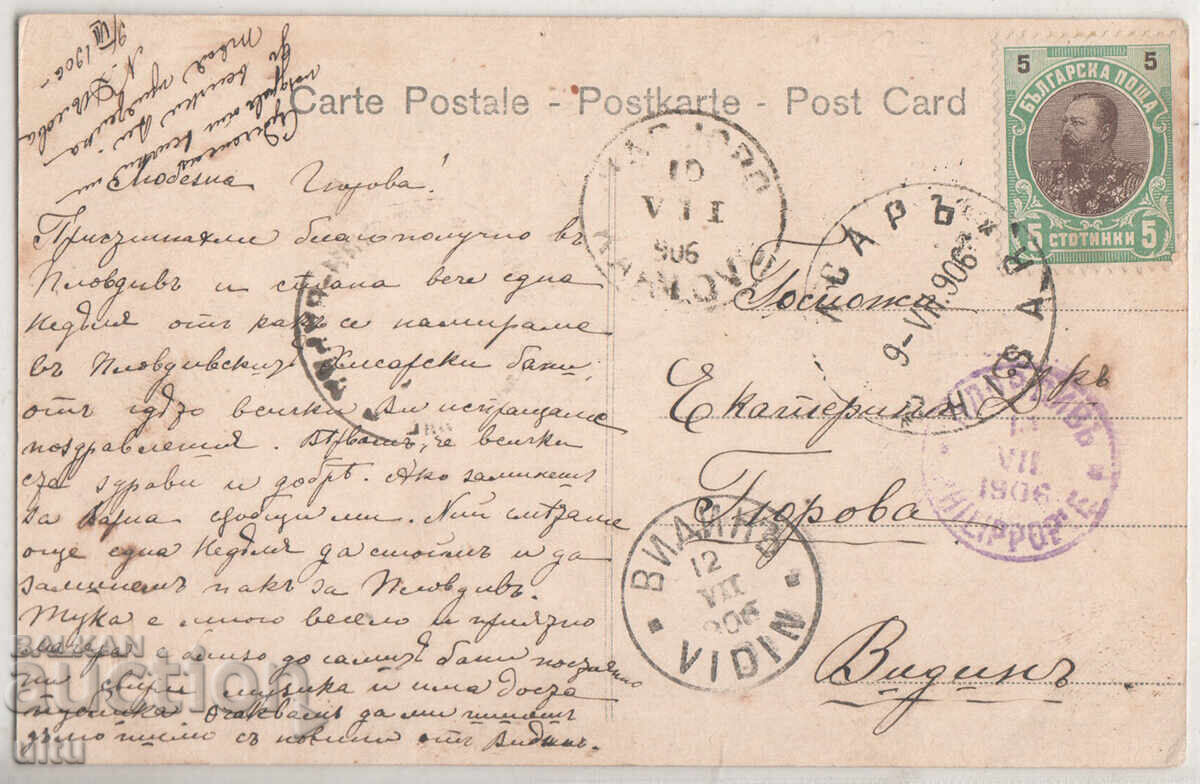 Carte Postale - Postkarte - Post Card
5 5
БЪЛГАРСКА ПОЩА
5 СТОТИНКИ 5
9/VII 1906
Любезна Гюрова!
Пристигнахме благополучно въ
Пловдивъ и стана вече една
неделя отъ какъ се намираме
въ Пловдивскитѣ Хисарски бани,
отъ гдѣто всички Ви испращаме
поздравления. Вѣрвамъ, че всички
сте здрави и добрѣ. Ако заминете
за Варна съобщи ми. Ний смѣтаме
още една неделя да стоимъ и да
заминемъ пакъ за Пловдивъ.
Тука е много весело и приятно
близо до самитѣ бани
свири музика и има доста
публика. Очаквамъ да ми пишешъ
дълго писмо съ новини отъ Видинъ.
10
VII
906
ХИСАРЪ
9-VII.906
HISSAR
Госпожа
Екатерина Д-ръ
Гюрова
Видинъ
ПЛОВДИВЪ
11
VII
1906
PHILIPPOPLE
ВИДИНЪ
12
VII
906
VIDIN
BALKAN
auction
ultu